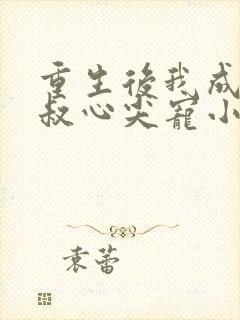 重生後我成
叔心尖寵小
袁蕾